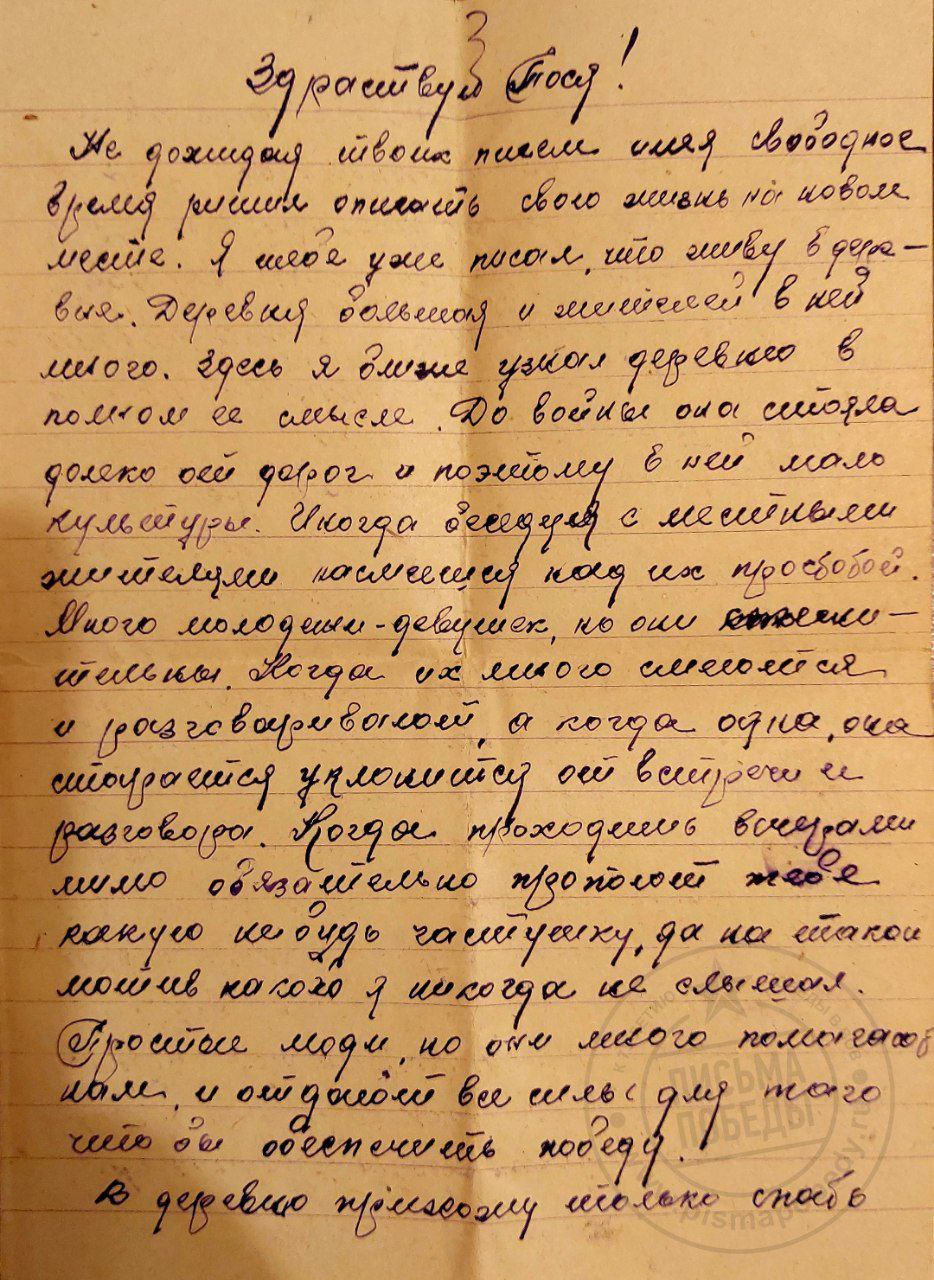 3
Здраствуй Тося!
Не дожидая твоих писем имея свободное
время решил описать свою жизнь на новом
месте. Я тебе уже писал, что живу в дере-
вне. Деревня большая и жителей в ней
много. Здесь я ближе узнал деревню в
полном ее смысле. До войны она стояла
далеко от дорог и поэтому в ней мало
культуры. Иногда беседуя с местными
жителями насмешся над их прозьбобой.
Много молодежи-девушек, но они стесни-
тельны. Когда их много смеются
и разговаривают, а когда одна, она
старается уклонится от встречи и
разговора. Когда проходишь вечерами
мимо обязательно пропоют тебе
какую небудь частушку, да на такой
мотив какого я никогда не слышал.
Простые люди, но они много помагают
нам, и отдают все силы для того
что бы обеспечить победу.
В деревню прихожу только спать
ПИСЬМА
ПОБЕДЫ
pismapobedy.ru